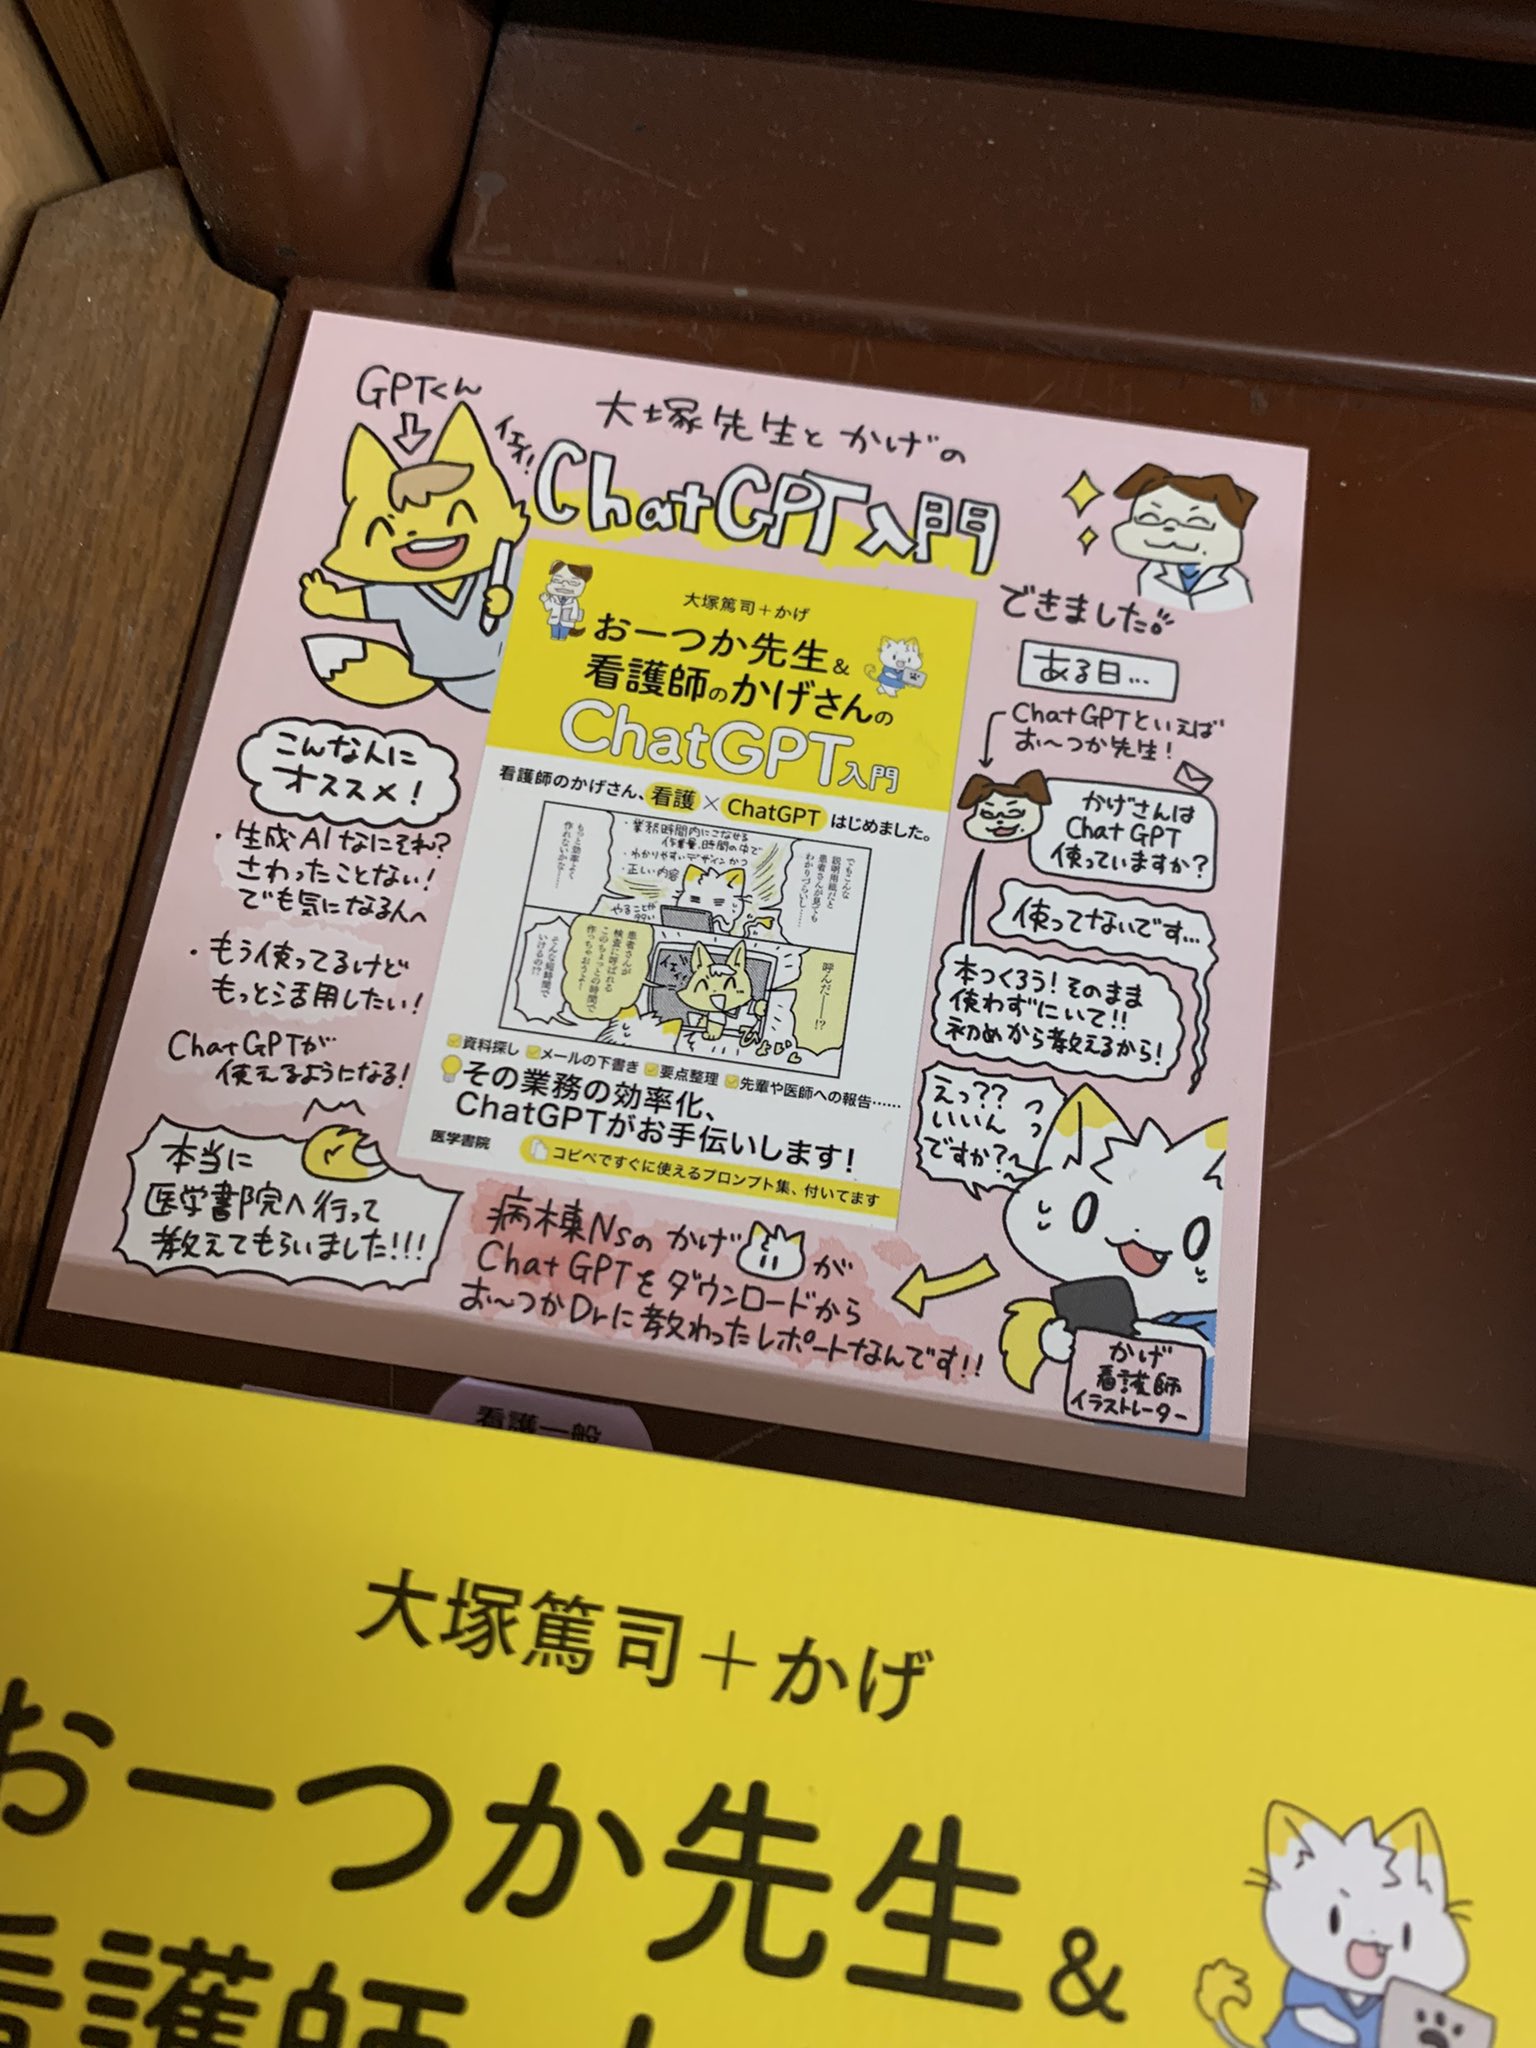 GPTくん
大塚先生とかげの
ChatGPT入門
できました
ある日...
ChatGPTといえば
お〜つか先生!
かげさんは
ChatGPT
使っていますか?
使ってないです...
本つくろう!そのまま
使わずにいて!!
初めから教えるから!
えっ??
いいん
ですか?〜
っっ
かげ
看護師
イラストレーター
こんな人に
オススメ!
・生成AIなにそれ?
さわったことない!
でも気になる人へ
・もう使ってるけど
もっと活用したい!
ChatGPTが
使えるようになる!
本当に
医学書院へ行って
教えてもらいました!!!
病棟Nsのかげが
ChatGPTをダウンロードから
お〜つかDrに教わったレポートなんです!!
大塚篤司+かげ
おーつか先生&
看護師のかげさんの
ChatGPT入門
看護師のかげさん、看護×ChatGPTはじめました。
でもこんな
説明用紙だと
患者さんが見ても
わかりづらいし……
・業務時間内にこなせる
作業量、時間の中で
・わかりやすいデザインかつ
・正しい内容
もっと効率よく
作れないかな……
呼んだ──!?
患者さんが
検査に呼ばれる
このちょっとの時間で
作っちゃおうよ!
そんな短時間で
いけるの!?
ひょいん
資料探し メールの下書き 要点整理 先輩や医師への報告……
その業務の効率化、
ChatGPTがお手伝いします!
医学書院
コピペですぐに使えるプロンプト集、付いてます
看護一般
大塚篤司+かげ
おーつか先生&
看護師